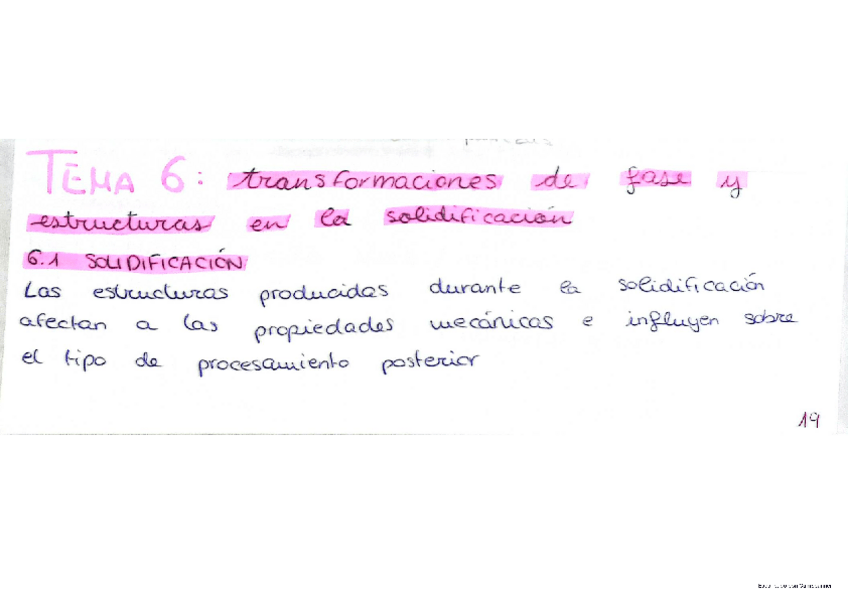 TEMA 6: transformaciones de fase y
estructuras en la solidificación
6.1 SOLIDIFICACIÓN
Las estructuras producidas durante la solidificación
afectan a las propiedades mecánicas e influyen sobre
el tipo de procesamiento posterior
19